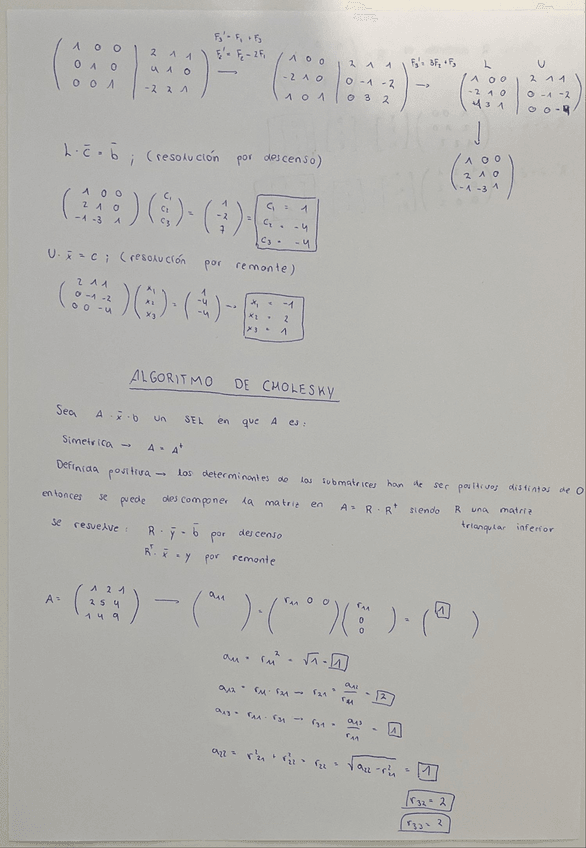 F₃' = F₁ + F₃
F₂' = F₂ - 2F₁
( 1 0 0 | 2 1 1 ) → ( 1 0 0 | 2 1 1 ) F₃' = 3F₂ + F₃ → L U ( 1 0 0 | 2 1 1 )
( 0 1 0 | 4 1 0 ) ( -2 1 0 | 0 -1 -2 ) ( -2 1 0 | 0 -1 -2 )
( 0 0 1 | -2 2 1 ) ( 1 0 1 | 0 3 2 ) ( 3 1 | 0 0 -4 )
↓
( 1 0 0 )
( 2 1 0 )
( -1 -3 1 )
L · c̄ = b̄ ; (resolución por descenso)
( 1 0 0 ) ( c₁ ) = ( 1 ) = c₁ = 1
( 2 1 0 ) ( c₂ ) ( -2 ) c₂ = -4
( -1 -3 1 ) ( c₃ ) ( 7 ) c₃ = -4
U · x̄ = c ; (resolución por remonte)
( 2 1 1 ) ( x₁ ) = ( 1 ) → x₁ = -1
( 0 -1 -2 ) ( x₂ ) ( -4 ) x₂ = 2
( 0 0 -4 ) ( x₃ ) ( -4 ) x₃ = 1
ALGORITMO DE CHOLESKY
Sea A · x̄ = b un SEL en que A es:
Simetrica → A = Aᵗ
Definida positiva → los determinantes de las submatrices han de ser positivos distintos de 0
entonces se puede descomponer la matriz en A = R · Rᵗ siendo R una matriz
triangular inferior
se resuelve : R · ȳ = b̄ por descenso
Rᵀ · x̄ = y por remonte
A = ( 1 2 1 ) → ( a₁₁ ) = ( r₁₁ 0 0 ) ( r₁₁ ) = ( 1 )
( 2 5 4 ) ( 0 )
( 1 4 9 ) ( 0 )
a₁₁ = r₁₁² = √1 = 1
a₁₂ = r₁₁ · r₂₁ → r₂₁ = a₁₂ / r₁₁ = 2
a₁₃ = r₁₁ · r₃₁ → r₃₁ = a₁₃ / r₁₁ = 1
a₂₂ = r²₂₁ + r²₂₂ = r₂₂ = √(a₂₂ - r²₂₁) = 1
r₃₂ = 2
r₃₃ = 2